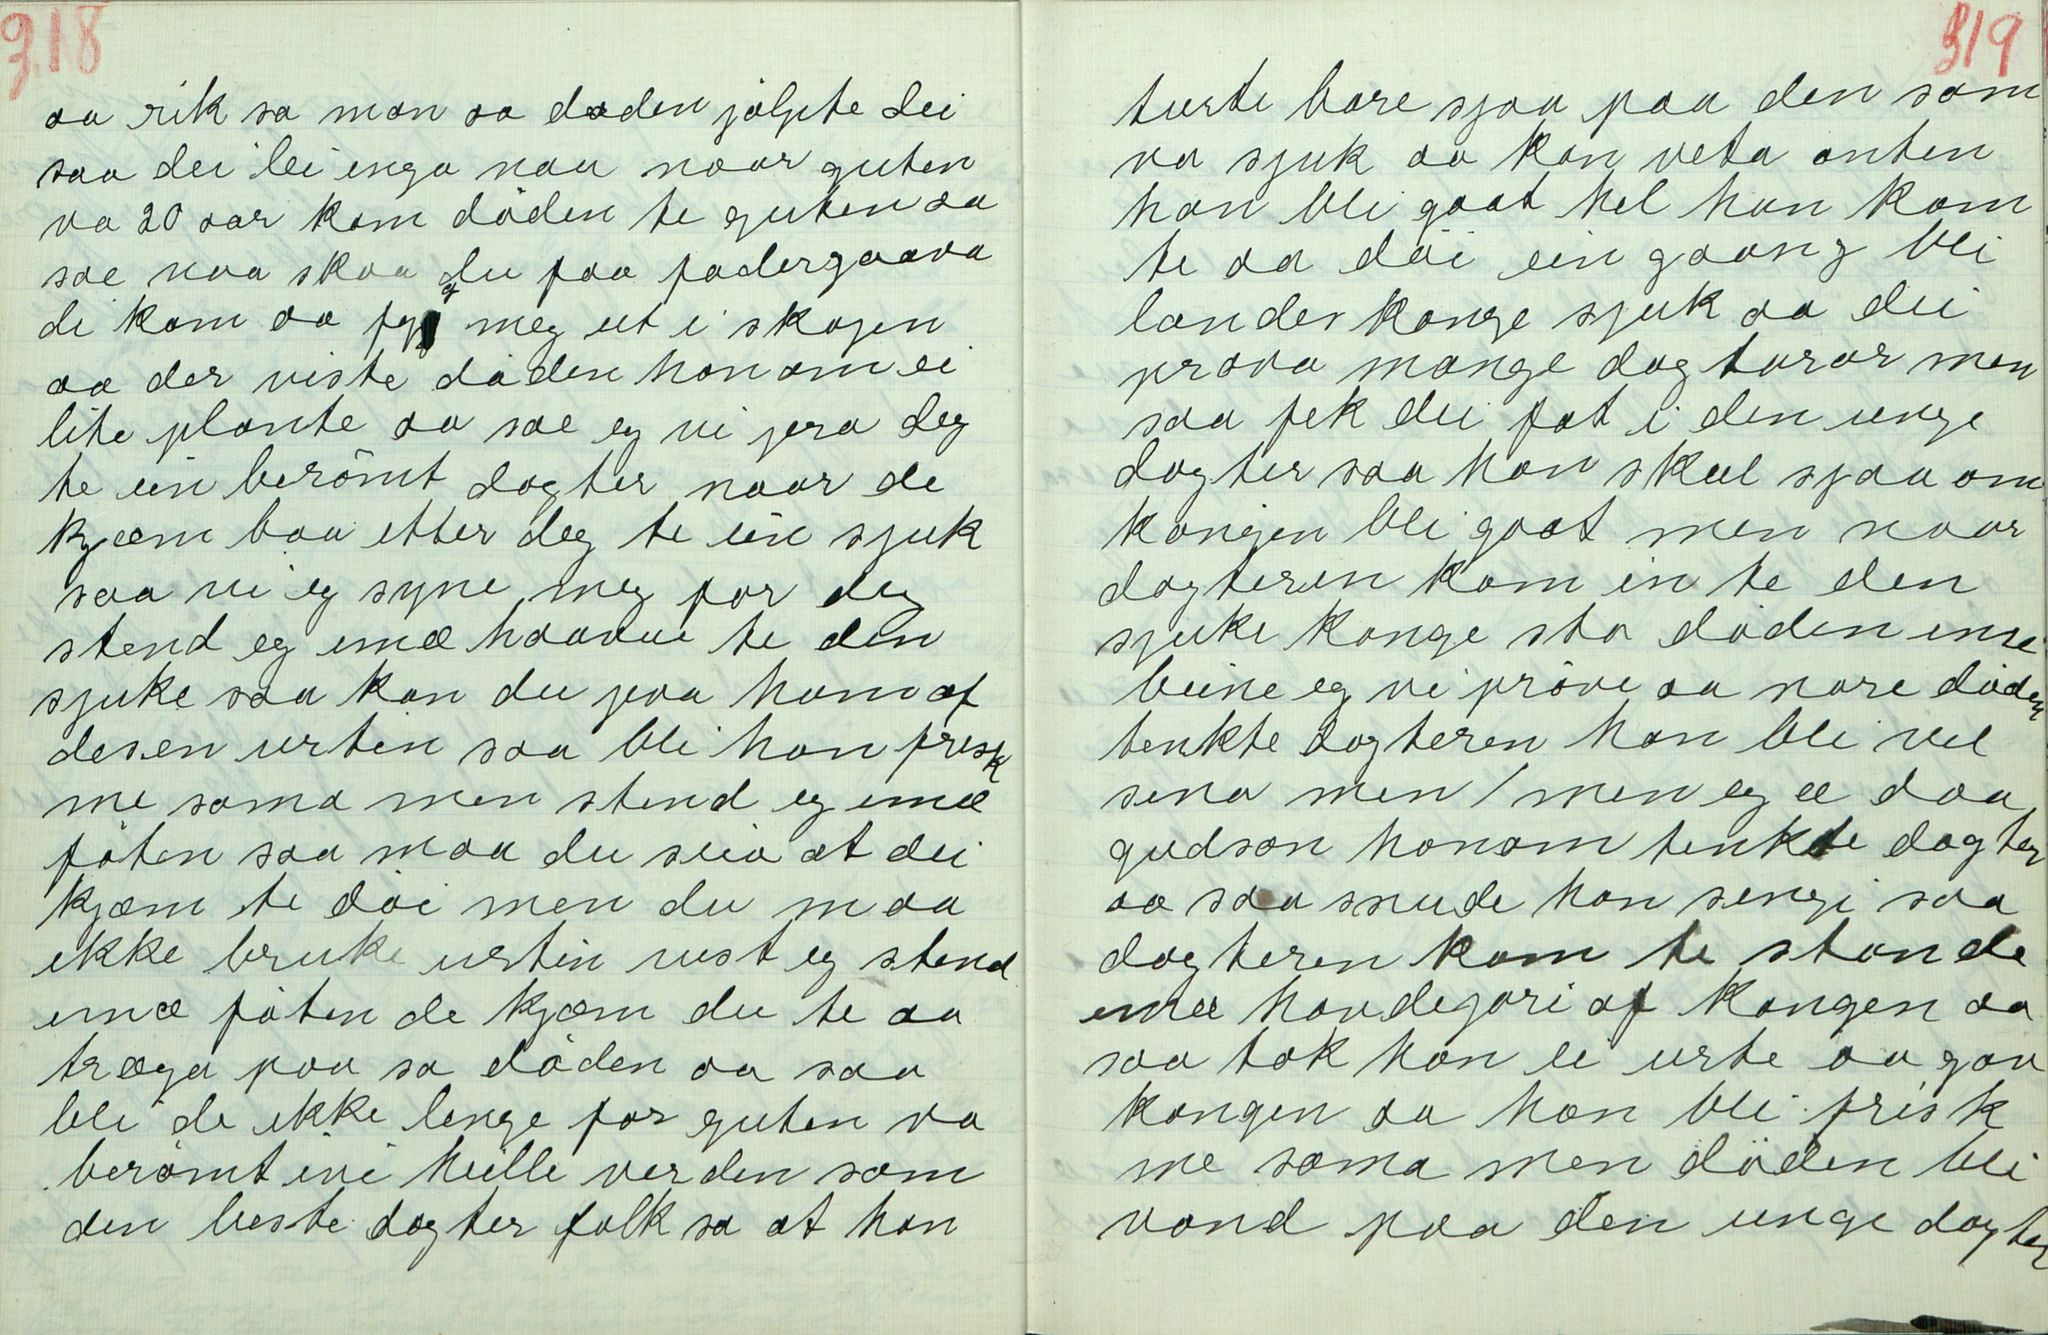 318
aa rik sa mon so døden jølpte dei
saa dei lei inga naa naar guten
va 20 aar kom döden te guten aa
sae naa skaa du faa fadergaava
di kom aa fyl meg ut i skogen
aa der viste døden honom ei
lite plante aa sae eg vi jera deg
te ein berömt dogter naar de
kjæm baa etter deg te ein sjuk
saa vi eg syne meg for deg
stend eg imæ haavue te den
sjuke saa kan du jvaa ham af
desen urten saa bli han frisk
me soma men stend eg imæ
føten saa maa du seia at dei
kjæm te døi men du maa
ikke bruke urtin vist eg stend
imæ føten de kjæm du te aa
træga paa sa döden aa saa
bli de ikke lenge for guten va
berömt ivi heille verden som
den beste dogter folk sa at han
319
turte bare sjaa paa den som
va sjuk aa kan veta anten
han bli goat hel han kom
te aa döi ein gaang bli
landes konge sjuk aa dei
prøva mange dogtorar men
saa fek dei fat i den unge
dogter saa han skul sjaa om
kongen bli goat men naar
dogteren kom in te den
sjuke konge sto døden imæ
beine eg vi pröve aa nare döden
tenkte dogteren han bli vel
sena men / men eg æ daa
gudson honom tenkte dogter
aa saa snude han sengi saa
dogteren kom te stonde
imæ hovdegari af kongen aa
saa tok han ei urte aa gav
kongen aa han bli frisk
me soma men döden bli
vond paa den unge dogter